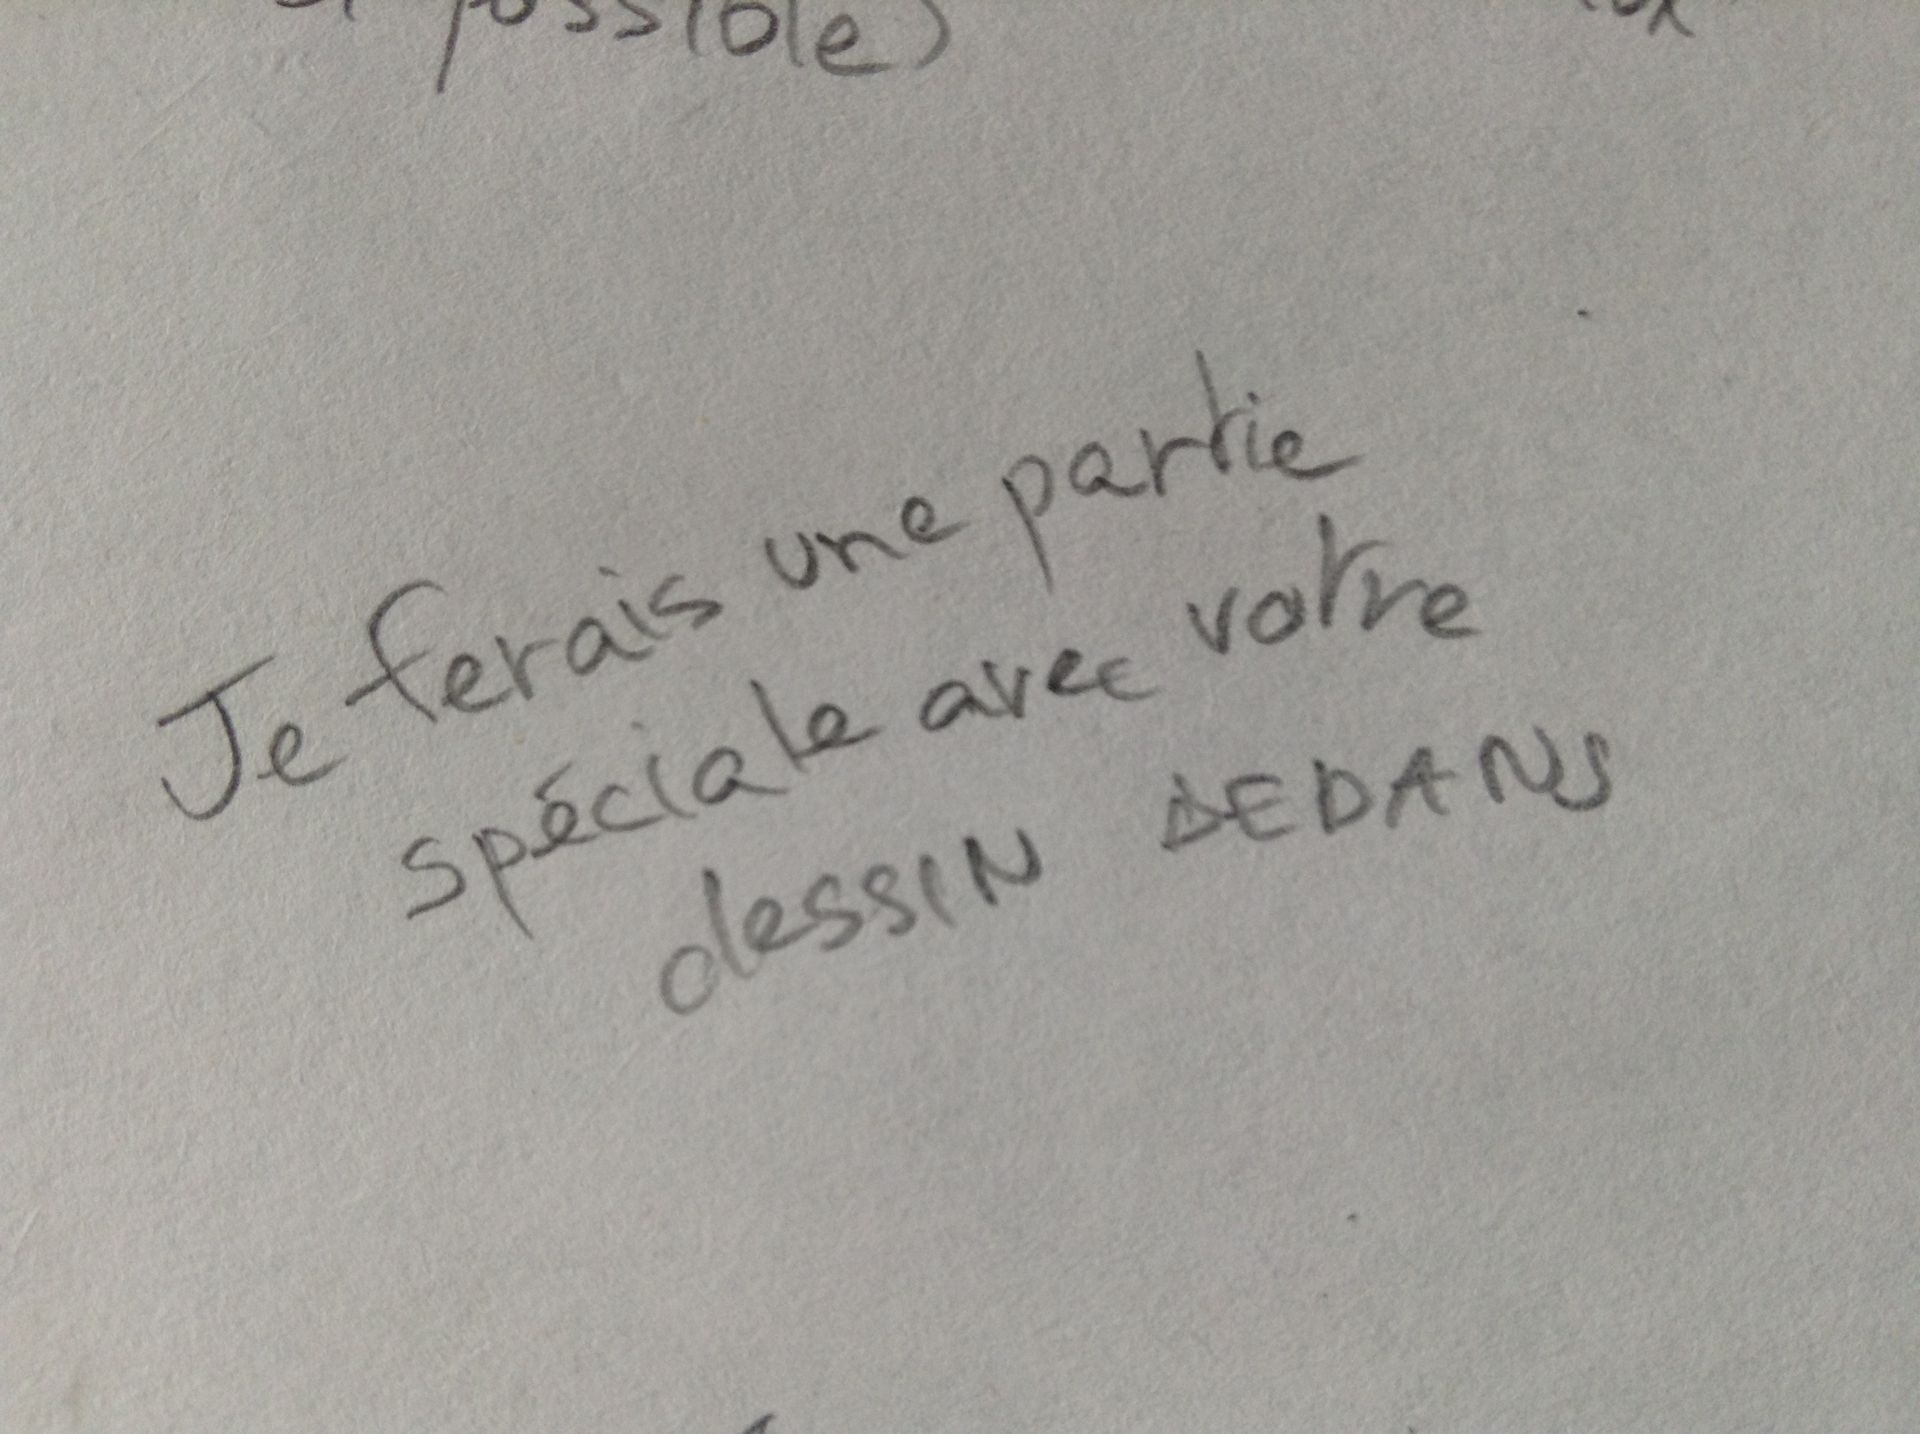 possible)
Je ferais une partie
spéciale avec votre
dessIN DEDANS